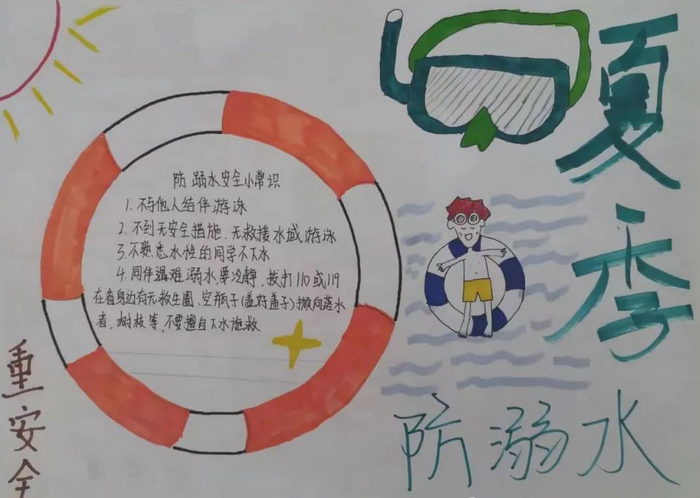 夏季
防溺水
重安全
防溺水安全小常识
1. 不与他人结伴游泳
2. 不到无安全措施、无救援水域游泳
3. 不熟悉水性的同学不下水
4. 同伴遇难溺水要冷静,拨打110或119
在看身边有无救生圈、空瓶子(盖好盖子)抛向落水
者,树枝等,不要擅自下水施救